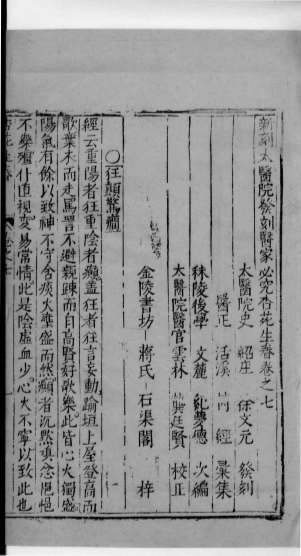 新刻太醫院發刻醫家必究杏花生春卷之七
太醫院吏 紹庄 徐文元 發刻
醫正 活溪 芮經 彙集
秣陵後學 文麓 紀夢德 次編
太醫院醫官 雲林 龔廷賢 校正
金陵書坊 蔣氏 石渠閣 梓
○狂顛驚癇
經云重陽者狂重陰者癲蓋狂者狂言妄動踰垣上屋登高而
歌棄衣而走罵詈不避親疎而自高賢好歌樂此皆心火獨盛
陽氣有餘以致神不守舍痰火壅盛而然癲者沉默昏忽悒悒
不樂殭仆直視变易常情此是陰虛血少心火不寧以致此也
杏花生春 卷之七